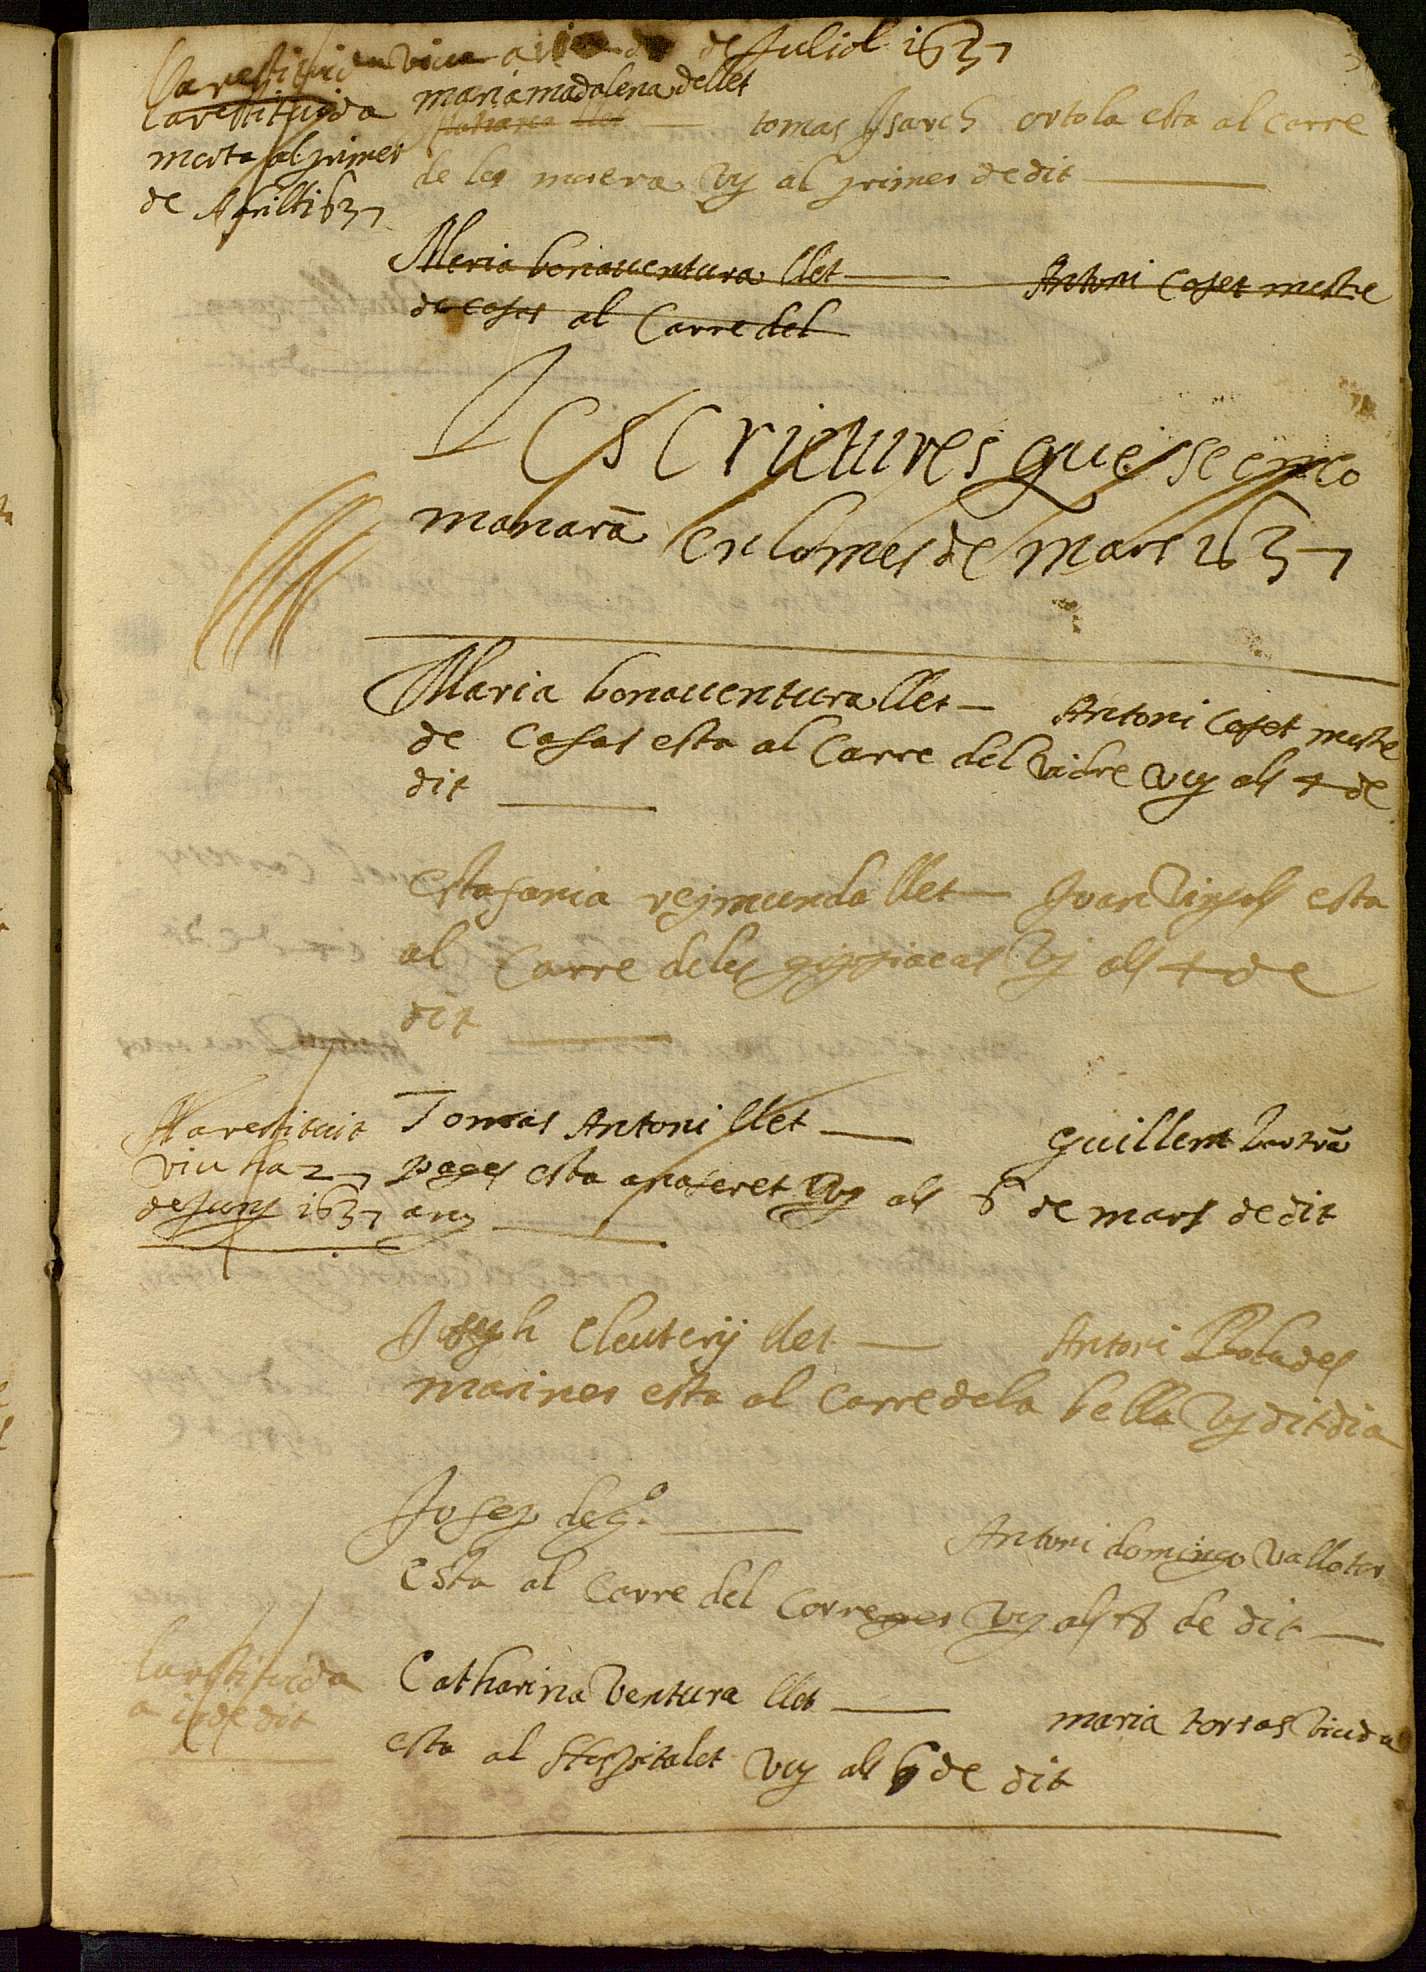 la restituida viva a de Juliol 1637
la restituida
morta al primer
de Aprill 1637
maria madalena de llet
tomas Isarch ortola esta al carre
de les mosera vy al primer de dit
Maria bonaventura llet Antoni Coset mestre
de cases al Carre del
Escrictures que se enco
manarã en lo mes de mars 1637
Maria bonaventura llet Antoni Coset mestre
de Casas esta al Carre del vidre vuy als 4 de
dit
estafania reymunda llet Joan esta
al Carre de les vy als 4 de
dit
Ha restituit
viu ha 27
de Juny 1637
Tomas Antoni llet Guillem bertrã
pages esta a vuy als 6 de mars de dit
any
Joseph eleutery llet Antoni
mariner esta al Carre de la bella vy dit dia
Josep de g.º Antoni domingo
esta al Carre del Correger vuy als 8 de dit
la restituida
a de dit
Catharina Ventura llet maria torras viuda
esta al Hespitalet vuy als de dit